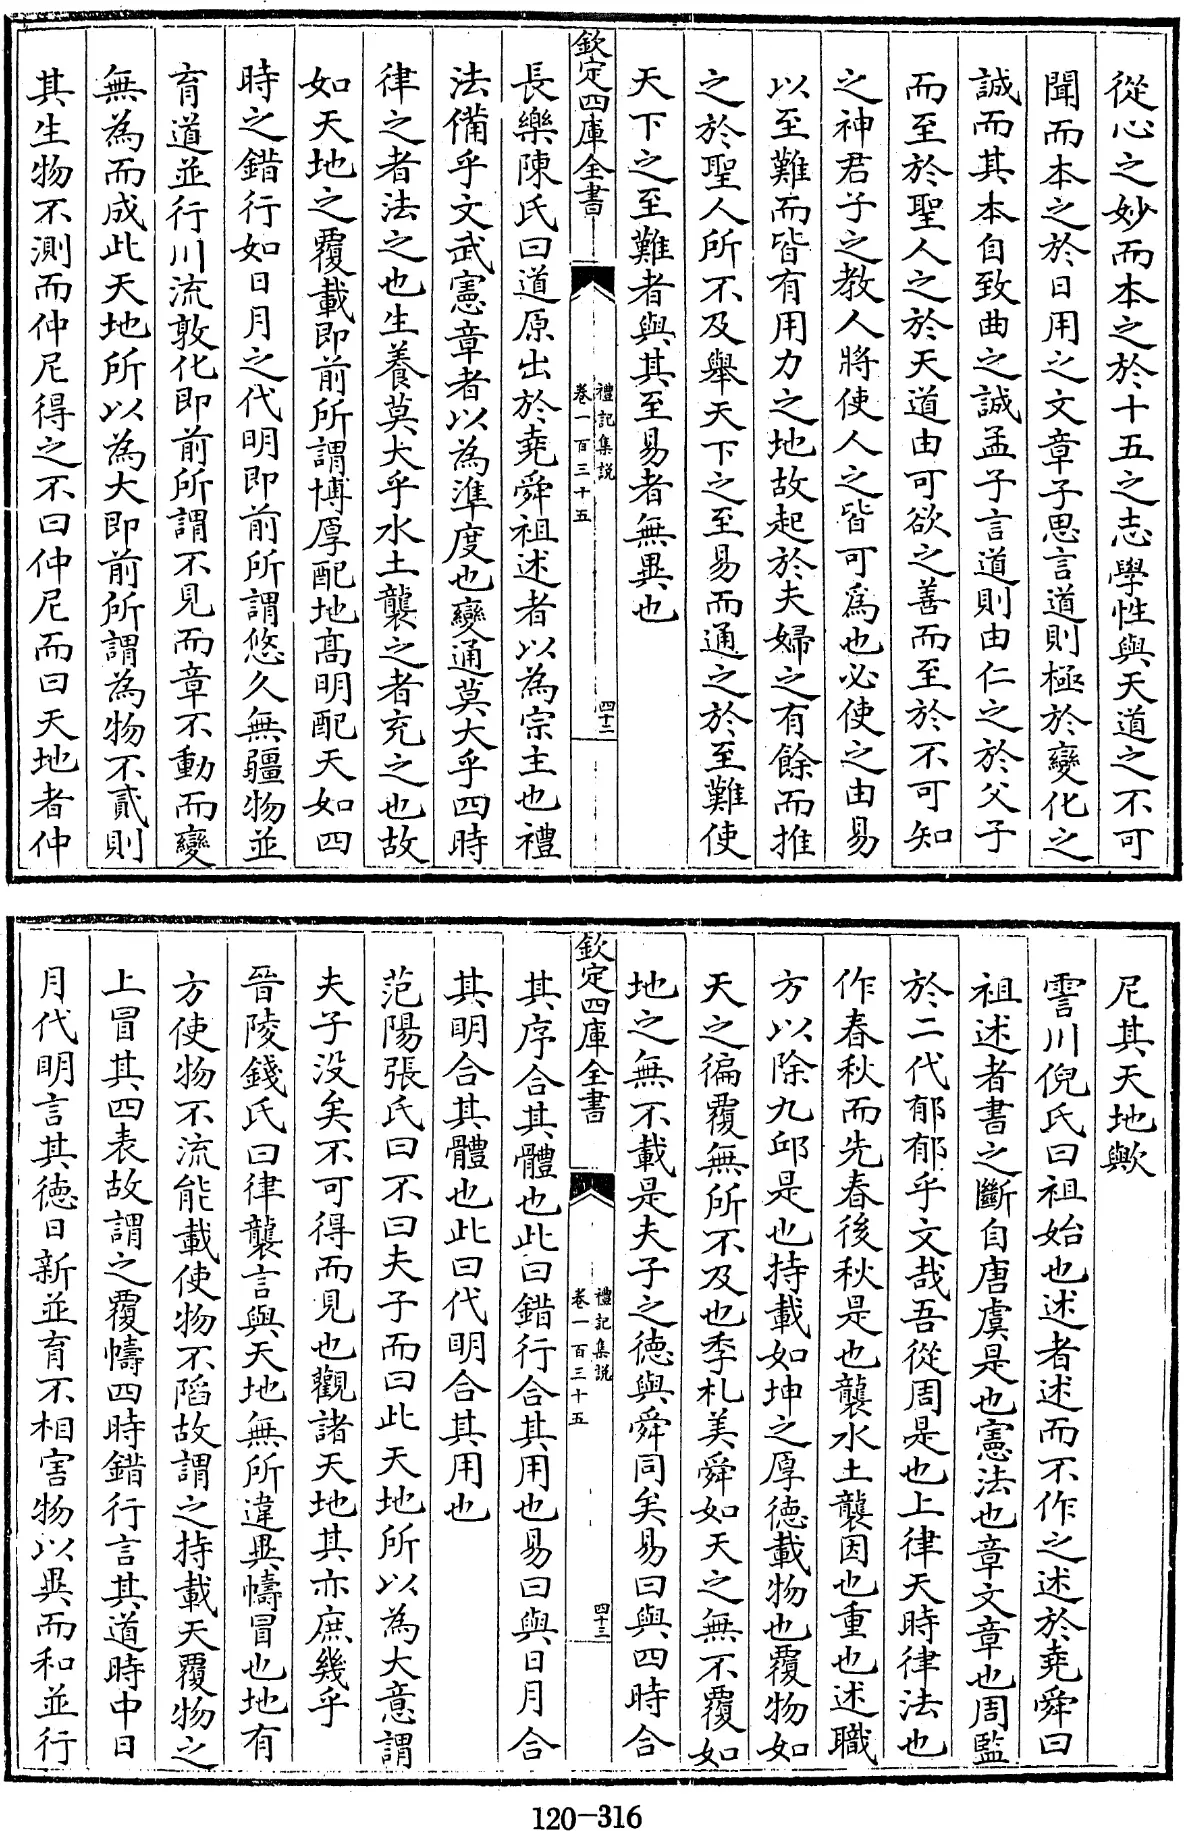 從心之妙而本之於十五之志學性與天道之不可
聞而本之於日用之文章子思言道則極於變化之
誠而其本自致曲之誠孟子言道則由仁之於父子
而至於聖人之於天道由可欲之善而至於不可知
之神君子之教人將使人之皆可為也必使之由易
以至難而皆有用力之地故起於夫婦之有餘而推
之於聖人所不及舉天下之至易而通之於至難使
天下之至難者與其至易者無異也
欽定四庫全書
禮記集説
卷一百三十五
四十二
長樂陳氏曰道原出於堯舜祖述者以為宗主也禮
法備乎文武憲章者以為準度也變通莫大乎四時
律之者法之也生養莫大乎水土襲之者充之也故
如天地之覆載即前所謂博厚配地高明配天如四
時之錯行如日月之代明即前所謂悠久無疆物並
育道並行川流敦化即前所謂不見而章不動而變
無為而成此天地所以為大即前所謂為物不貳則
其生物不測而仲尼得之不曰仲尼而曰天地者仲
尼其天地歟
霅川倪氏曰祖始也述者述而不作之述於堯舜曰
祖述者書之斷自唐虞是也憲法也章文章也周監
於二代郁郁乎文哉吾從周是也上律天時律法也
作春秋而先春後秋是也襲水土襲因也重也述職
方以除九邱是也持載如坤之厚德載物也覆物如
天之徧覆無所不及也季札美舜如天之無不覆如
地之無不載是夫子之德與舜同矣易曰與四時合
欽定四庫全書
禮記集説
卷一百三十五
四十三
其序合其體也此曰錯行合其用也易曰與日月合
其明合其體也此曰代明合其用也
范陽張氏曰不曰夫子而曰此天地所以為大意謂
夫子没矣不可得而見也觀諸天地其亦庶幾乎
晉陵錢氏曰律襲言與天地無所違異幬冒也地有
方使物不流能載使物不陷故謂之持載天覆物之
上冒其四表故謂之覆幬四時錯行言其道時中日
月代明言其德日新並育不相害物以異而和並行
120-316